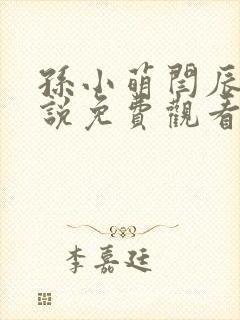 孫小萌閆辰
說免費觀看
李嘉廷